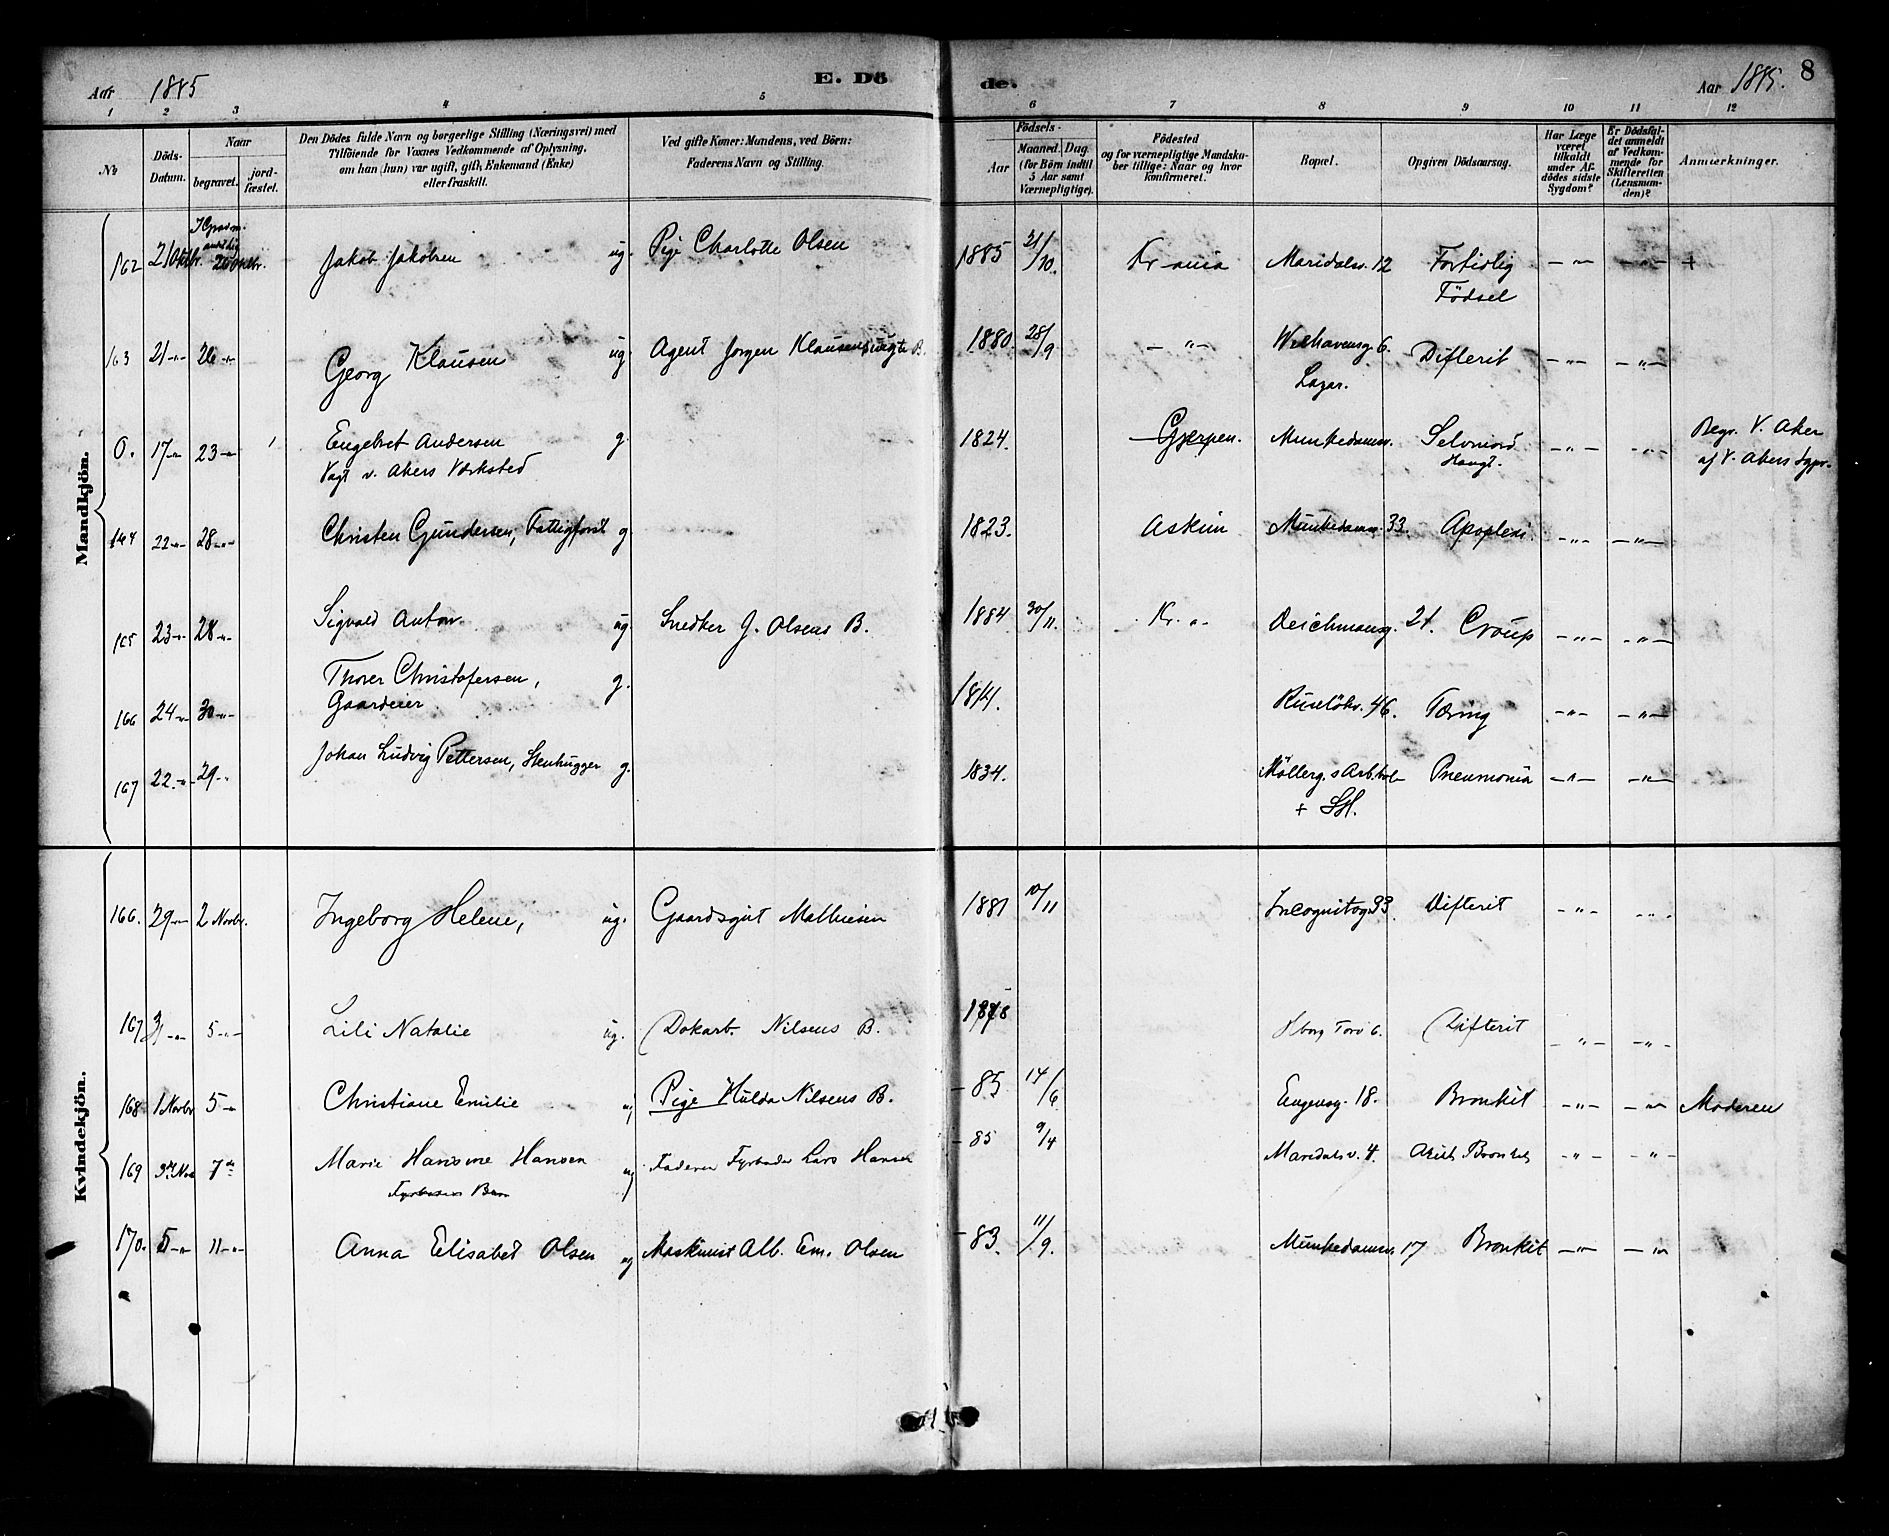 Aar 1885 E. Döde. Aar 1885. 8
1 2 3 4 5 6 7 8 9 10 11 12
No
Döds-Datum.
Naar
begravet.
jord-fæstet.
Den Dödes fulde Navn og borgerlige Stilling (Næringsvei) med
Tilföiende for Voxnes Vedkommende af Oplysning,
om han (hun) var ugift, gift, Enkemand (Enke)
eller fraskilt.
Ved gifte Koner: Mandens, ved Börn:
Faderens Navn og Stilling.
Födsels-
Aar
Maaned. Dag.
(for Börn indtil
5 Aar samt
Værnepligtige).
Födested
og for værnepligtige Mandska-
ber tillige: Naar og hvor
konfirmeret.
Bopæl.
Opgiven Dödsaarsag.
Har Læge
været
tilkaldt
under Af-
dödes sidste
Sygdom?
Er Dödsfal-
det anmeldt
af Vedkom-
mende for
Skifteretten
(Lensman-
den)?
Anmærkninger.
Mandkjön.
162 21 Oktbr. 26 Oktbr. Jakob Jakobsen ug. Pige Charlotte Olsen 1885 21/10. Kr-ania Maridalsv. 12 Fortidlig - " - - " - +
Födsel
163 21 - " - 26 - " - Georg Klausen ug. Agent Jørgen Klausens B. 1880. 28/9 - " - Welhavensg. 6. Difterit - " - - " -
Lazar.
0. 17 - " - 23 - " - Engebret Andersen g. 1824. Gjerpen. Munkedamsv. Selvmord - " - - " - Begr. V. Aker
Vagt v. Akers Værksted Hængt. af V. Akers Sgpr.
164 22 - " - 28 - " - Christen Gundersen, Fattigforst. g. 1823. Askim Munkedamsv. 33. Apoplexi. - " - - " -
165 23 - " - 28 - " - Sigvald Anton ug. Snedker J. Olsens B. 1884 30/11. Kr. a. Deichmansg. 21. Croup - " - - " -
166 24 - " - 30 - " - Thorer Christofersen, g. 1841. Ruselökv. 46. Tæring - " - - " -
Gaardeier
167 22 - " - 29 - " - Johan Ludvig Pettersen, Stenhugger g. 1834. Möllerg.s Arb.hol Pneumonia - " - - " -
+
Kvindekjön.
166. 29 - " - 2 Novbr. Ingeborg Helene, ug. Gaardsgut Mathiesen 1881 10/11 Incognitog. 33. Difterit - " - - " -
167 31 - " - 5 - " - Lili Natalie ug. Dokarb. Nilsens B. 1878 Hborg Torv 6. Difterit - " - - " -
168 1 Novbr 5 - " - Christiane Emilie ug Pige Hulda Nilsens B. - 85 14/6. Eugensg. 18. Bronkit - " - - " - Moderen
169 3die Nov 7de Marie Hansine Hansen ug Faderen Fyrböder Lars Hansen - 85 9/4 Maridalsv. 4. - " - - " -
Fyrböders Barn
170. 5 - " - 11 - " - Anna Elisabet Olsen ug Maskinist Alb. Em. Olsen - 83. 11/9. Munkedamsv. 17 Bronkit - " - - " -